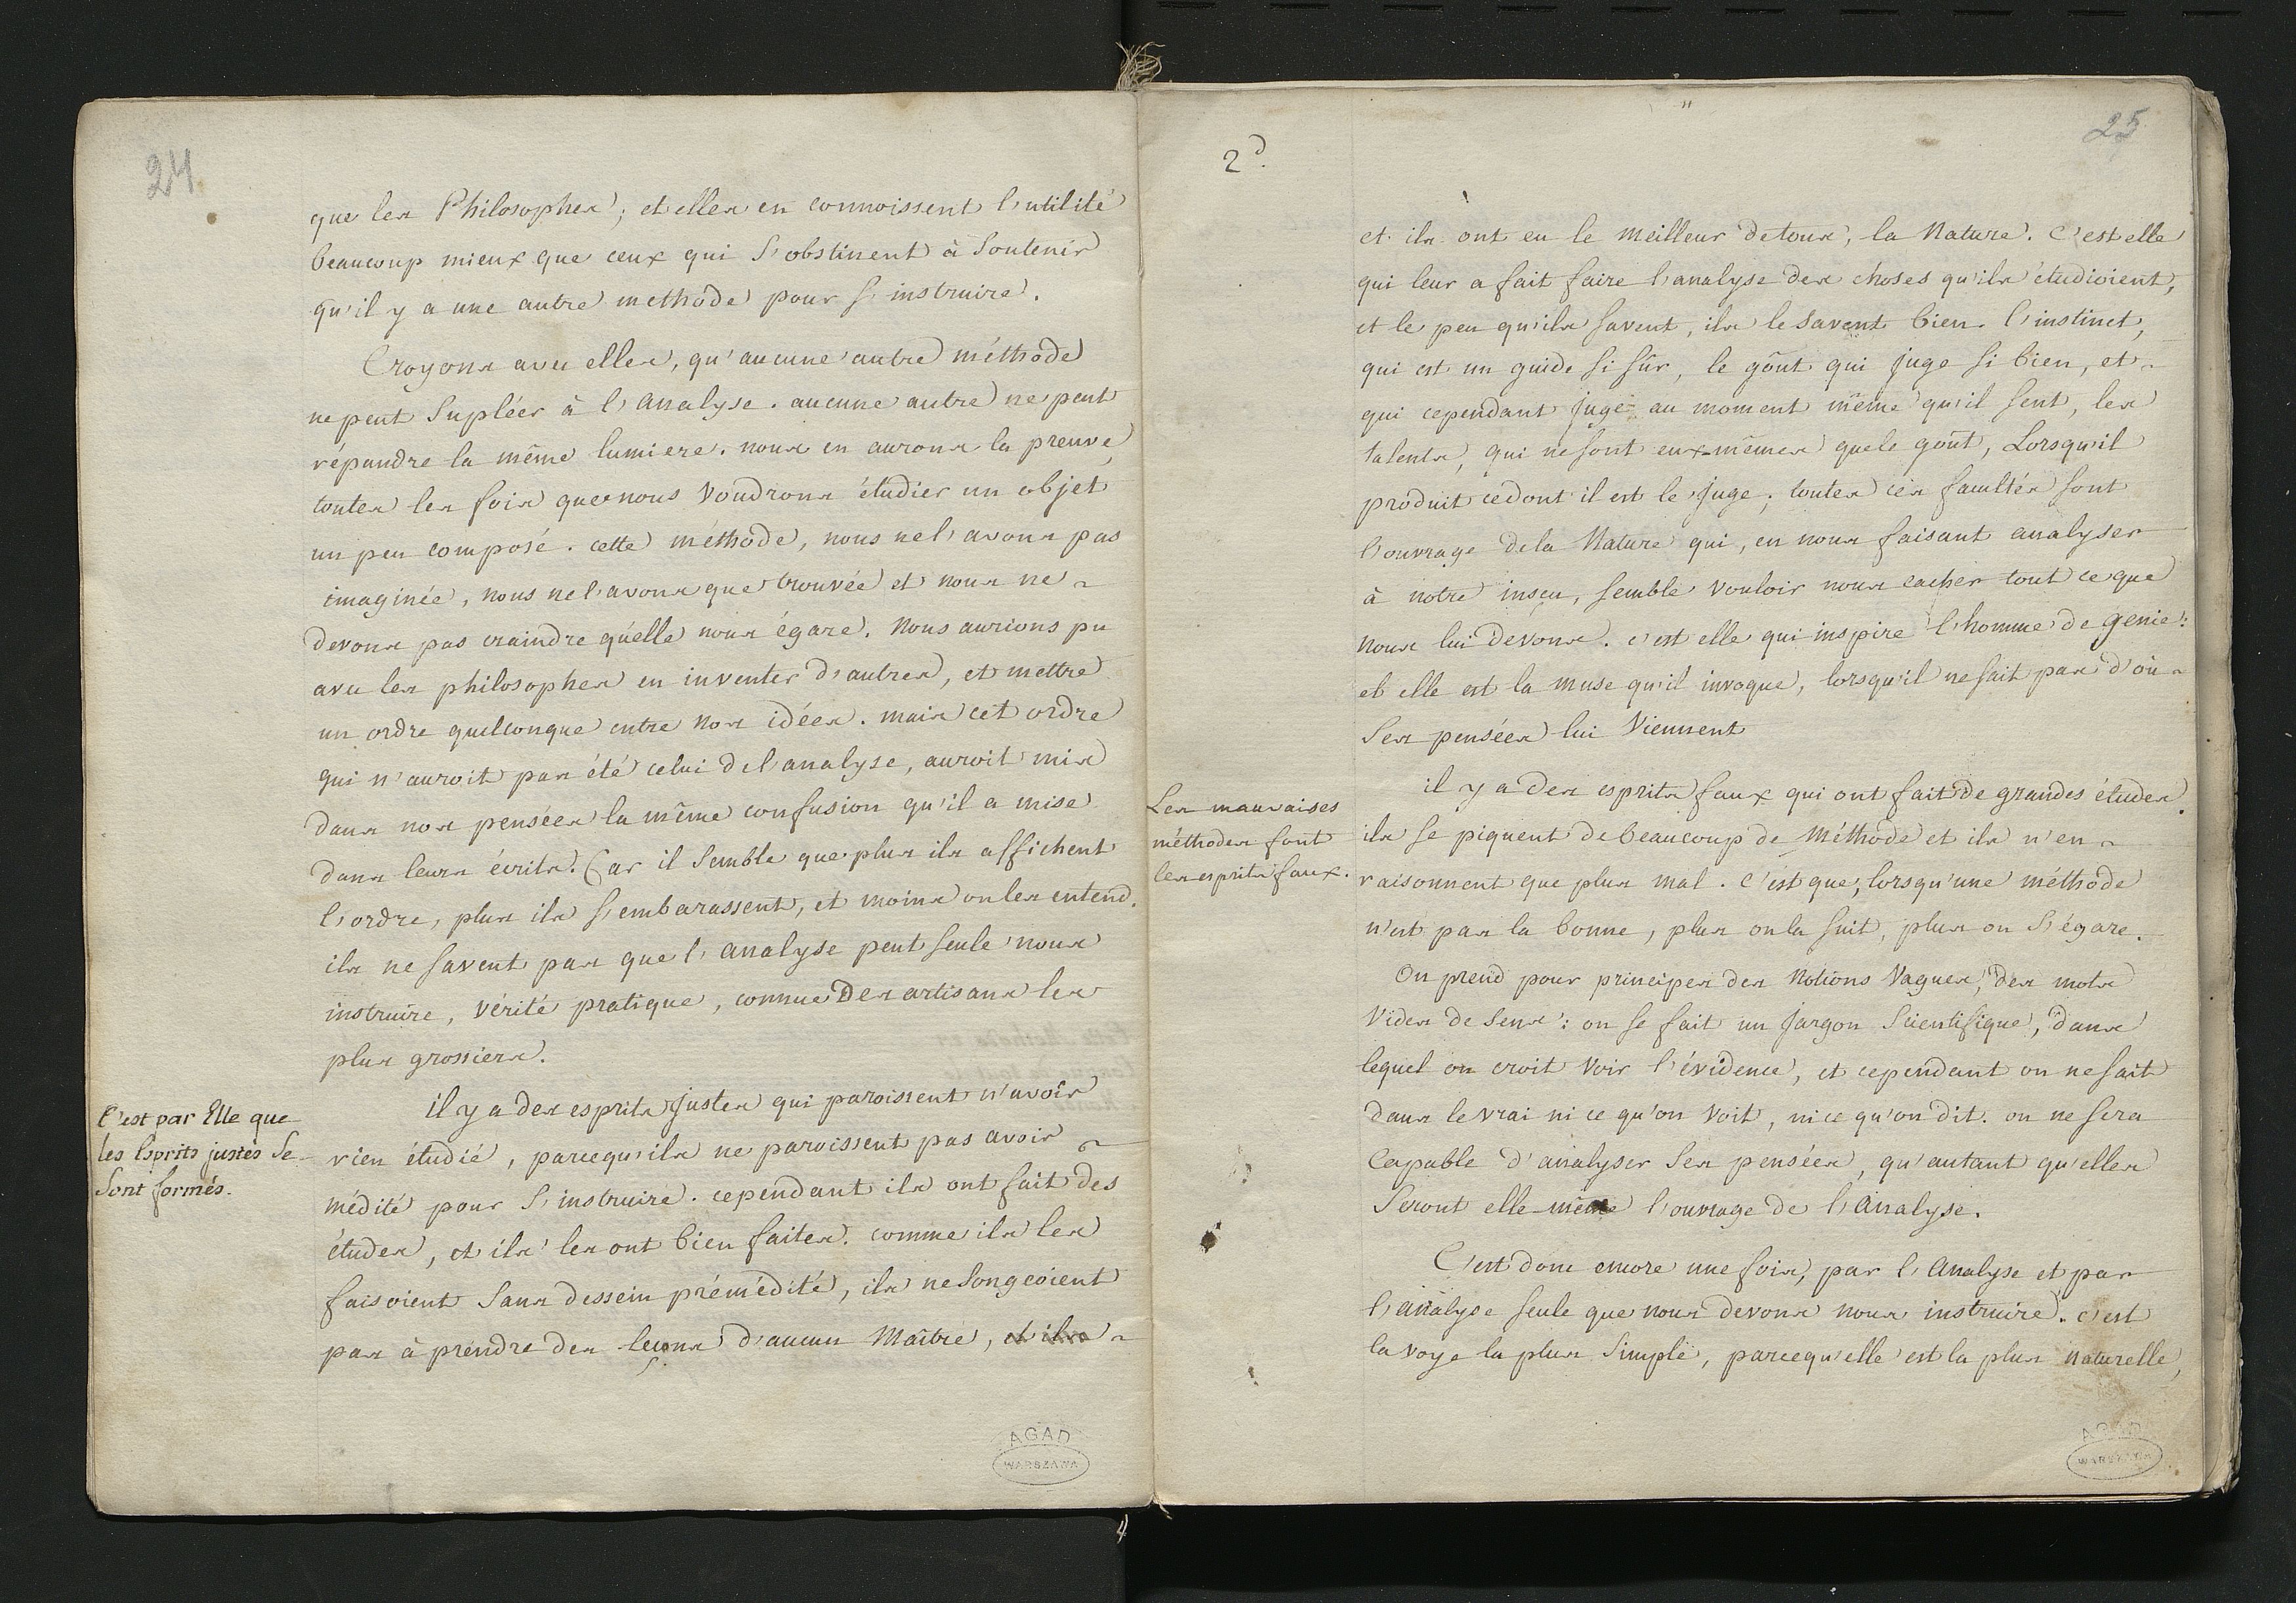 24
que les Philosophes; et elles en connoissent l'utilité
beaucoup mieux que ceux qui s'obstinent à soutenir
qu'il y a une autre methode pour s'instruire.
Croyons avec elles, qu'aucune autre méthode
ne peut supléer à l'analyse. aucune autre ne peut
répandre la même lumiere. nous en aurons la preuve,
toutes les fois que nous voudrons étudier un objet
un peu composé. cette méthode, nous ne l'avons pas
imaginée, nous ne l'avons que trouvée et nous ne
devons pas craindre qu'elle nous égare. Nous aurions pu
avec les philosophes en inventer d'autres, et mettre
un ordre quelconque entre nos idées. mais cet ordre
qui n'auroit pas été celui de l'analyse, auroit mis
dans nos pensées la même confusion qu'il a mise
dans leurs écrits. Car il semble que plus ils affichent
l'ordre, plus ils s'embarassent, et moins on les entend.
ils ne savent pas que l'analyse peut seule nous
instruire, vérité pratique, connue des artisans les
plus grossiers.
C'est par Elle que
les Esprits justes se
sont formés.
il y a des esprits justes qui paroissent n'avoir
rien étudié, parcequ'ils ne paroissent pas avoir
médité pour s'instruire. cependant ils ont fait des
études, et ils les ont bien faites. comme ils les
faisoient sans dessein prémédité, ils ne songeoient
pas à prendre des leçons d'aucun Maître, et ils
AGAD
WARSZAWA
25
2d.
et ils ont eu le meilleur de tous, la Nature. C'est elle
qui leur a fait faire l'analyse des choses qu'ils étudioient,
et le peu qu'ils savent, ils le savent bien. l'instinct,
qui est un guide si sûr, le goût qui juge si bien, et
qui cependant juge au moment même qu'il sent, les
talents, qui ne sont eux-mêmes que le goût, Lorsqu'il
produit ce dont il est le juge; toutes ces facultés sont
l'ouvrage de la Nature qui, en nous faisant analyser
à notre insçu, semble vouloir nous cacher tout ce que
nous lui devons. c'est elle qui inspire l'homme de genie:
et elle est la muse qu'il invoque, lorsqu'il ne sait pas d'où
ses pensées lui viennent
Les mauvaises
méthodes font
les esprits faux.
il y a des esprits faux qui ont fait de grandes études.
ils se piquent de beaucoup de Méthode et ils n'en
raisonnent que plus mal. c'est que, lorsqu'une méthode
n'est pas la bonne, plus on la suit, plus on s'égare.
On prend pour principes des Notions Vagues, des mots
vides de sens: on se fait un jargon scientifique, dans
lequel on croit voir l'évidence, et cependant on ne sait
dans le vrai ni ce qu'on voit, ni ce qu'on dit. on ne sera
capable d'analyser ses pensées, qu'autant qu'elles
seront elle-même l'ouvrage de l'analyse.
C'est donc encore une fois, par l'Analyse et par
l'analyse seule que nous devons nous instruire. c'est
la voye la plus simple, parcequ'elle est la plus naturelle,
AGAD
WARSZAWA